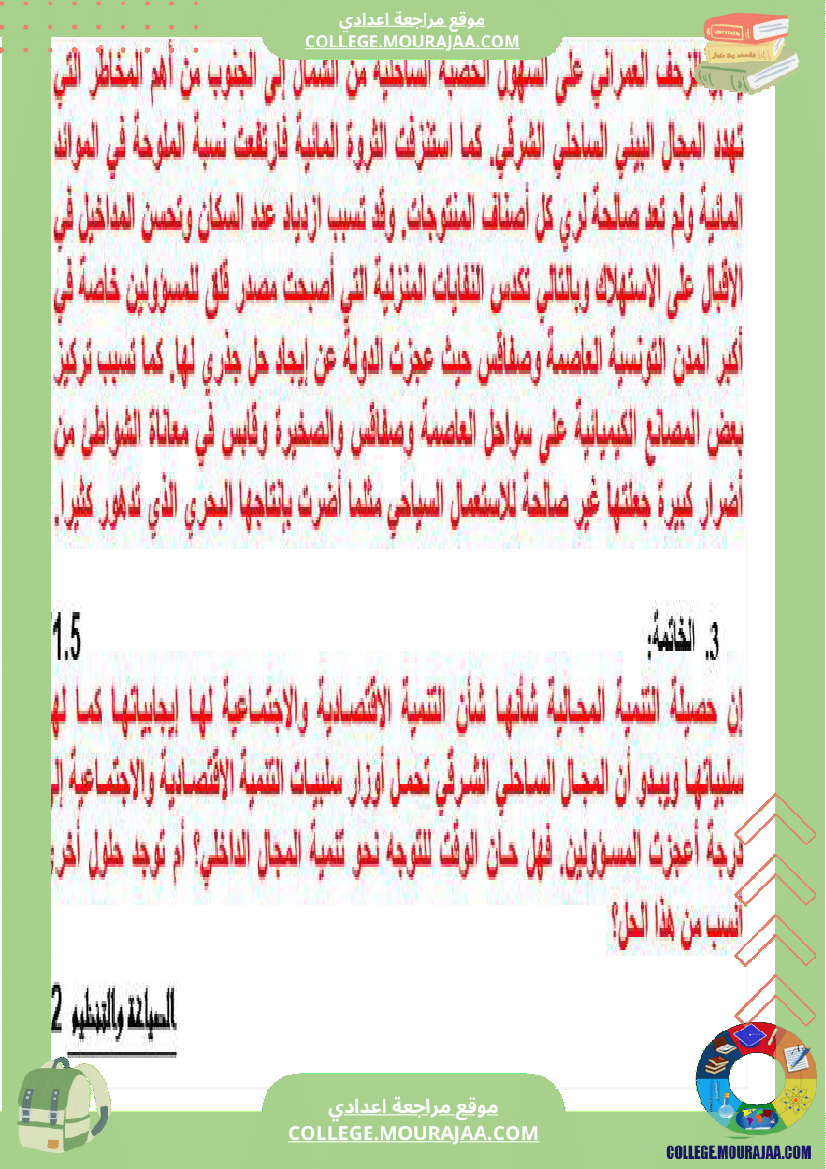 موقع مراجعة اعدادي
COLLEGE.MOURAJAA.COM
الزحف العمراني على السهول الخصبة الساحلية من الشمال إلى الجنوب من أهم المخاطر التي
تهدد المجال البيئي الساحلي الشرقي. كما استنزفت الثروة المائية فارتفعت نسبة الملوحة في الموائد
المائية ولم تعد صالحة لري كل أصناف المنتوجات. وقد تسبب ازدياد عدد السكان وتحسن المداخيل في
الاقبال على الاستهلاك وبالتالي تكدس النفايات المنزلية التي أصبحت مصدر قلق للمسؤولين خاصة في
أكبر المدن التونسية العاصمة وصفاقس حيث عجزت الدولة عن إيجاد حل جذري لها. كما تسبب تركيز
بعض المصانع الكيميائية على سواحل العاصمة وصفاقس والصخيرة وقابس في معاناة الشواطئ من
أضرار كبيرة جعلتها غير صالحة للاستعمال السياحي مثلما أضرت بإنتاجها البحري الذي تدهور كثيرا.
3. الخاتمة: 1.5
إن حصيلة التنمية المجالية شأنها شأن التنمية الاقتصادية والاجتماعية لها إيجابياتها كما لها
سلبياتها ويبدو أن المجال الساحلي الشرقي تحمل أوزار سلبيات التنمية الاقتصادية والاجتماعية إلى
درجة أعجزت المسؤولين. فهل حان الوقت للتوجه نحو تنمية المجال الداخلي؟ أم توجد حلول أخرى
أنسب من هذا الحل؟
الصياغة والتنظيم 2
موقع مراجعة اعدادي
COLLEGE.MOURAJAA.COM
COLLEGE.MOURAJAA.COM